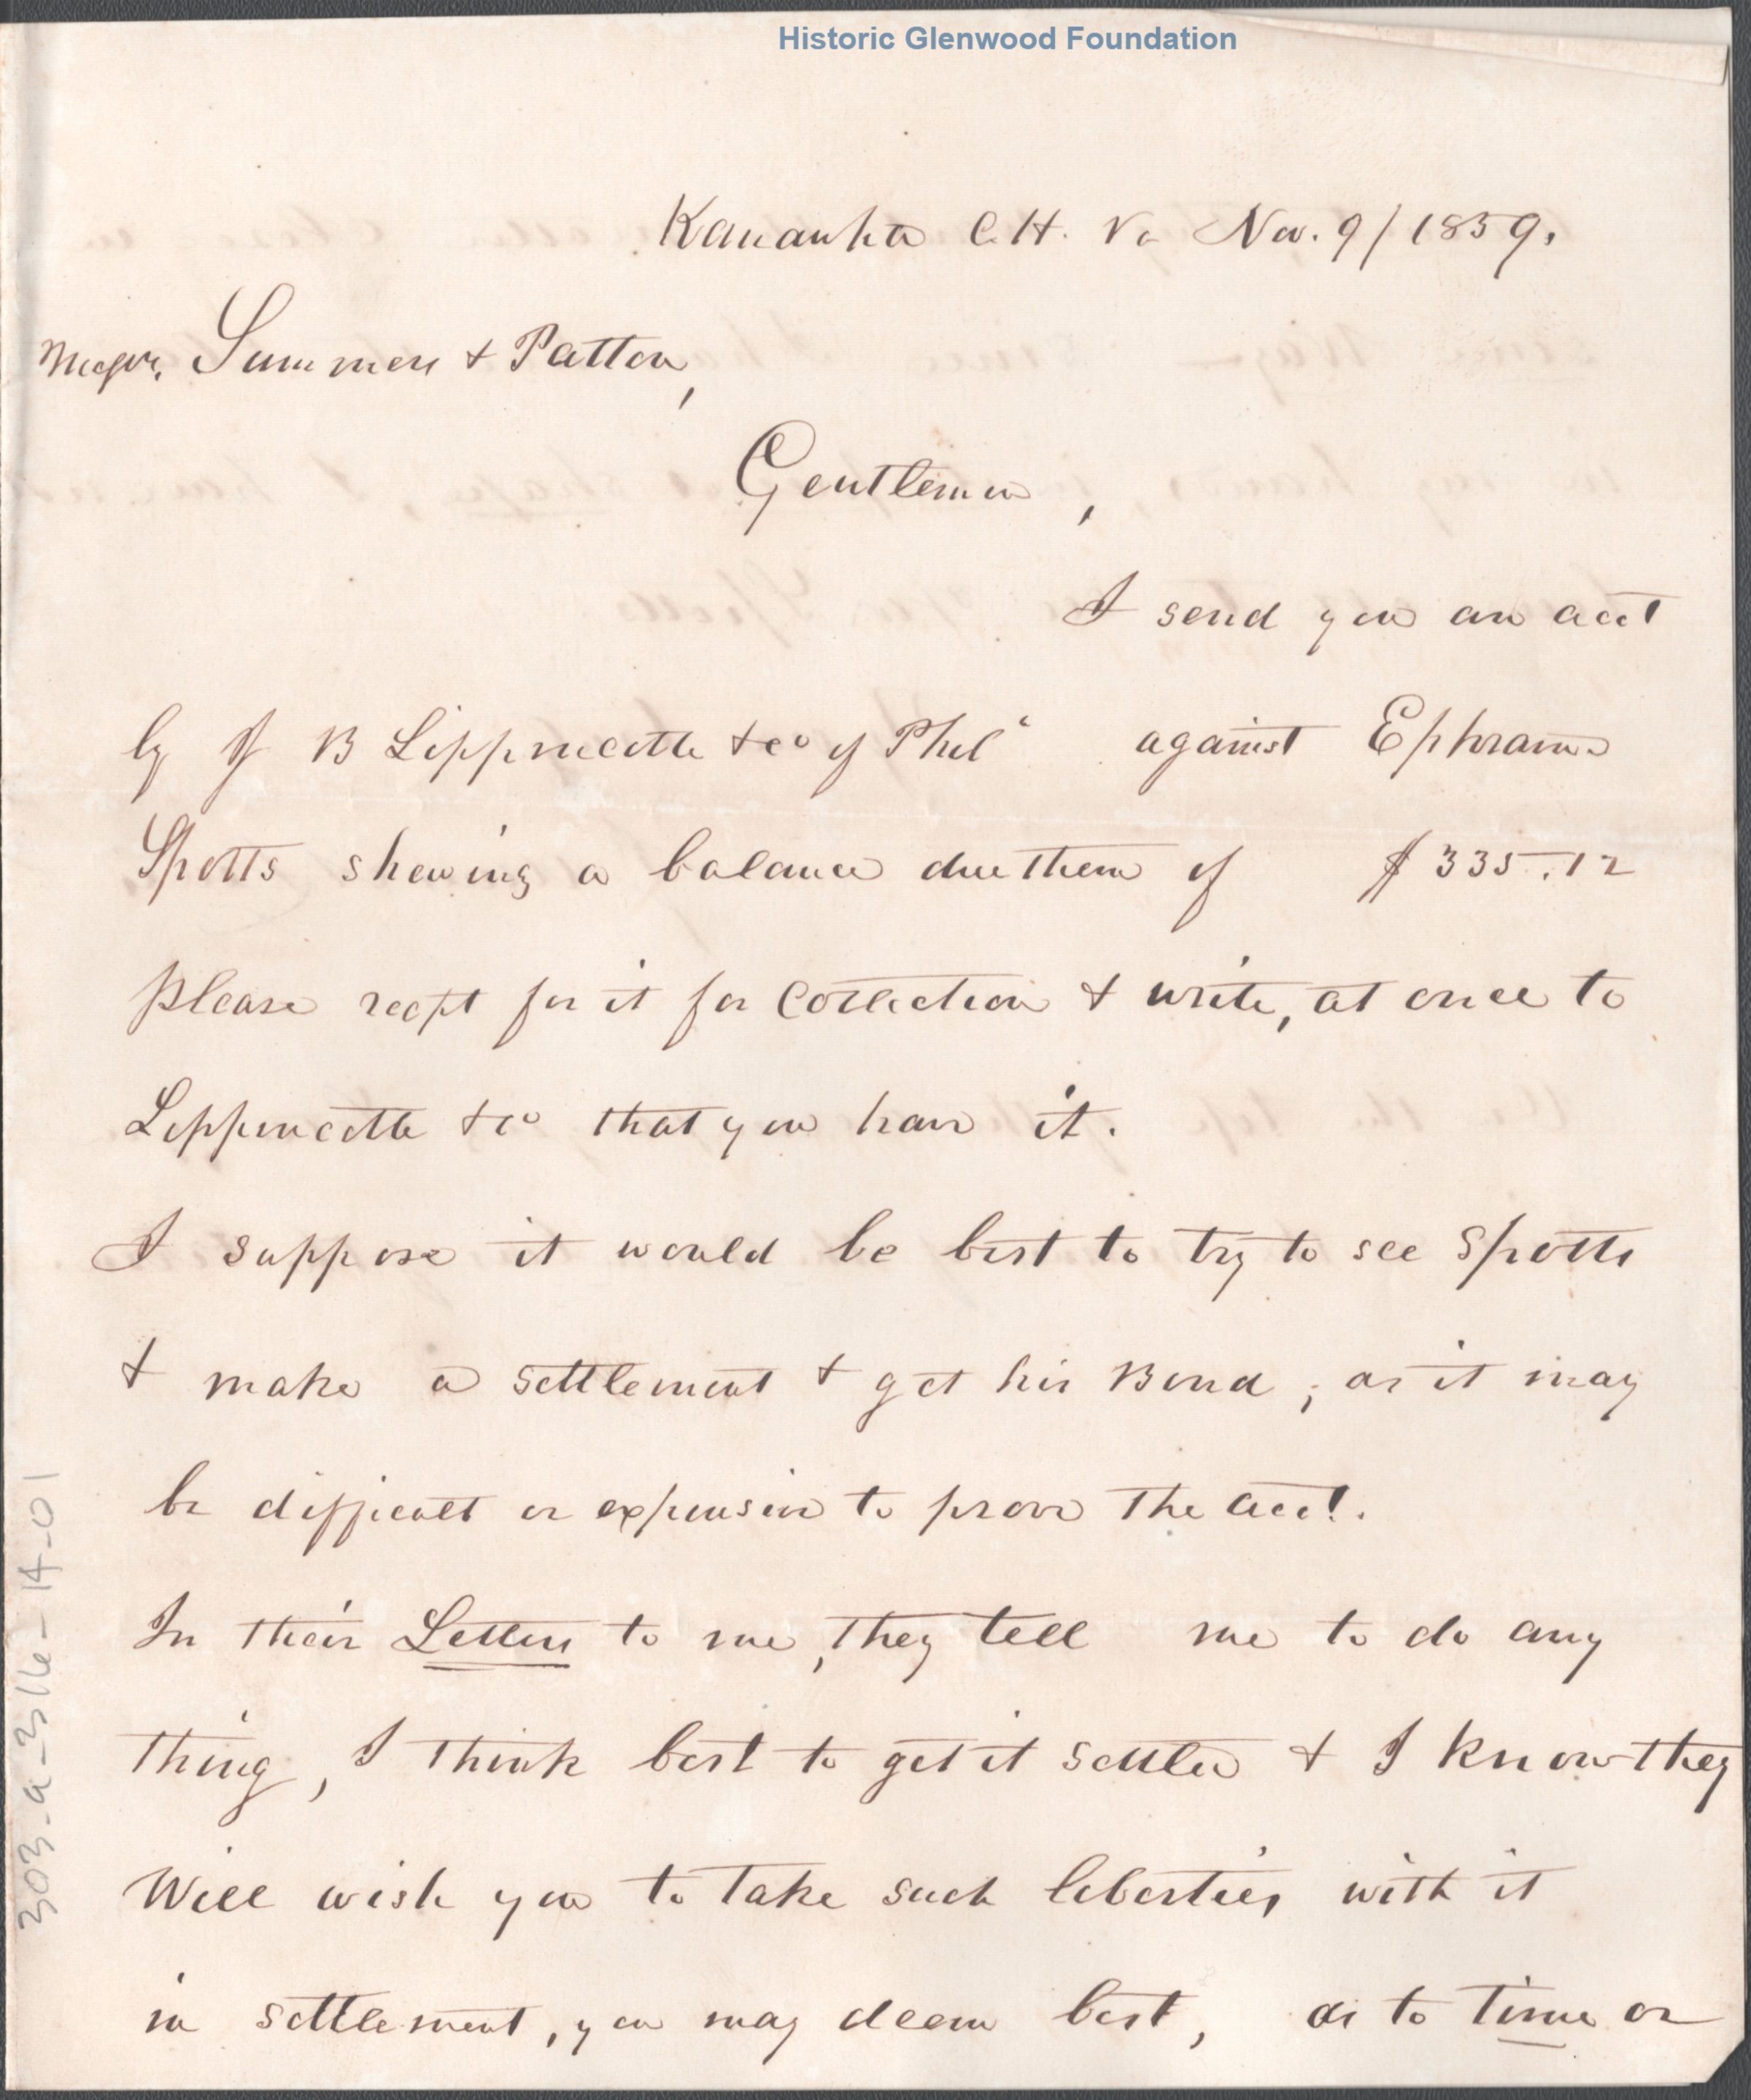 Historic Glenwood Foundation
Kanawha C.H. Va Nov. 9/1859.
Messrs. Summers & Patton,
Gentlemen,
I send you an acct
by J B Lippincotte & Co of Phila against Ephraim
Spotts shewing a balance due them of $335.12
please recpt for it for Collection & write, at once to
Lippincotte & Co that you have it.
I suppose it would be best to try to see Spotts
& make a settlement & get his Bond, as it may
be difficult or expensive to prove the acct.
In their Letters to me, they tell me to do any
thing, I think best to get it settled & I know they
Will wish you to take such liberties with it
in settlement, you may deem best, as to time or
303-a-311e-14-01